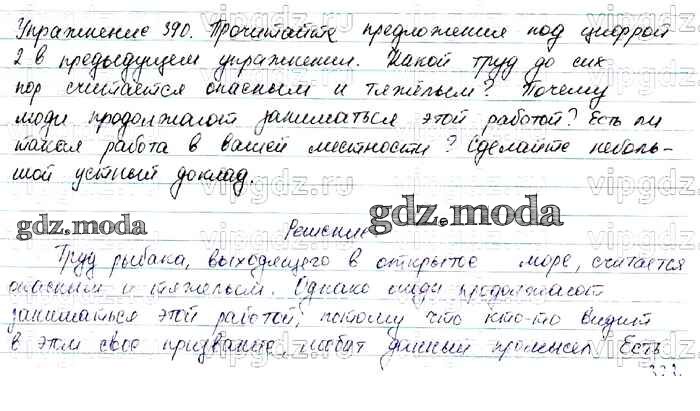 Упражнение 390. Прочитайте предложения под цифрой
2 в предыдущем упражнении. Какой труд до сих
пор считается опасным и тяжёлым? Почему
люди продолжают заниматься этой работой? Есть ли
такая работа в вашей местности? Сделайте неболь-
шой устный доклад.
gdz.moda
Решение
gdz.moda
Труд рыбака, выходящего в открытое море, считается
опасным и тяжелым. Однако люди продолжают
заниматься этой работой, потому что кто-то видит
в этом свое призвание, любит данный промысел. Есть
vipgdz.ru